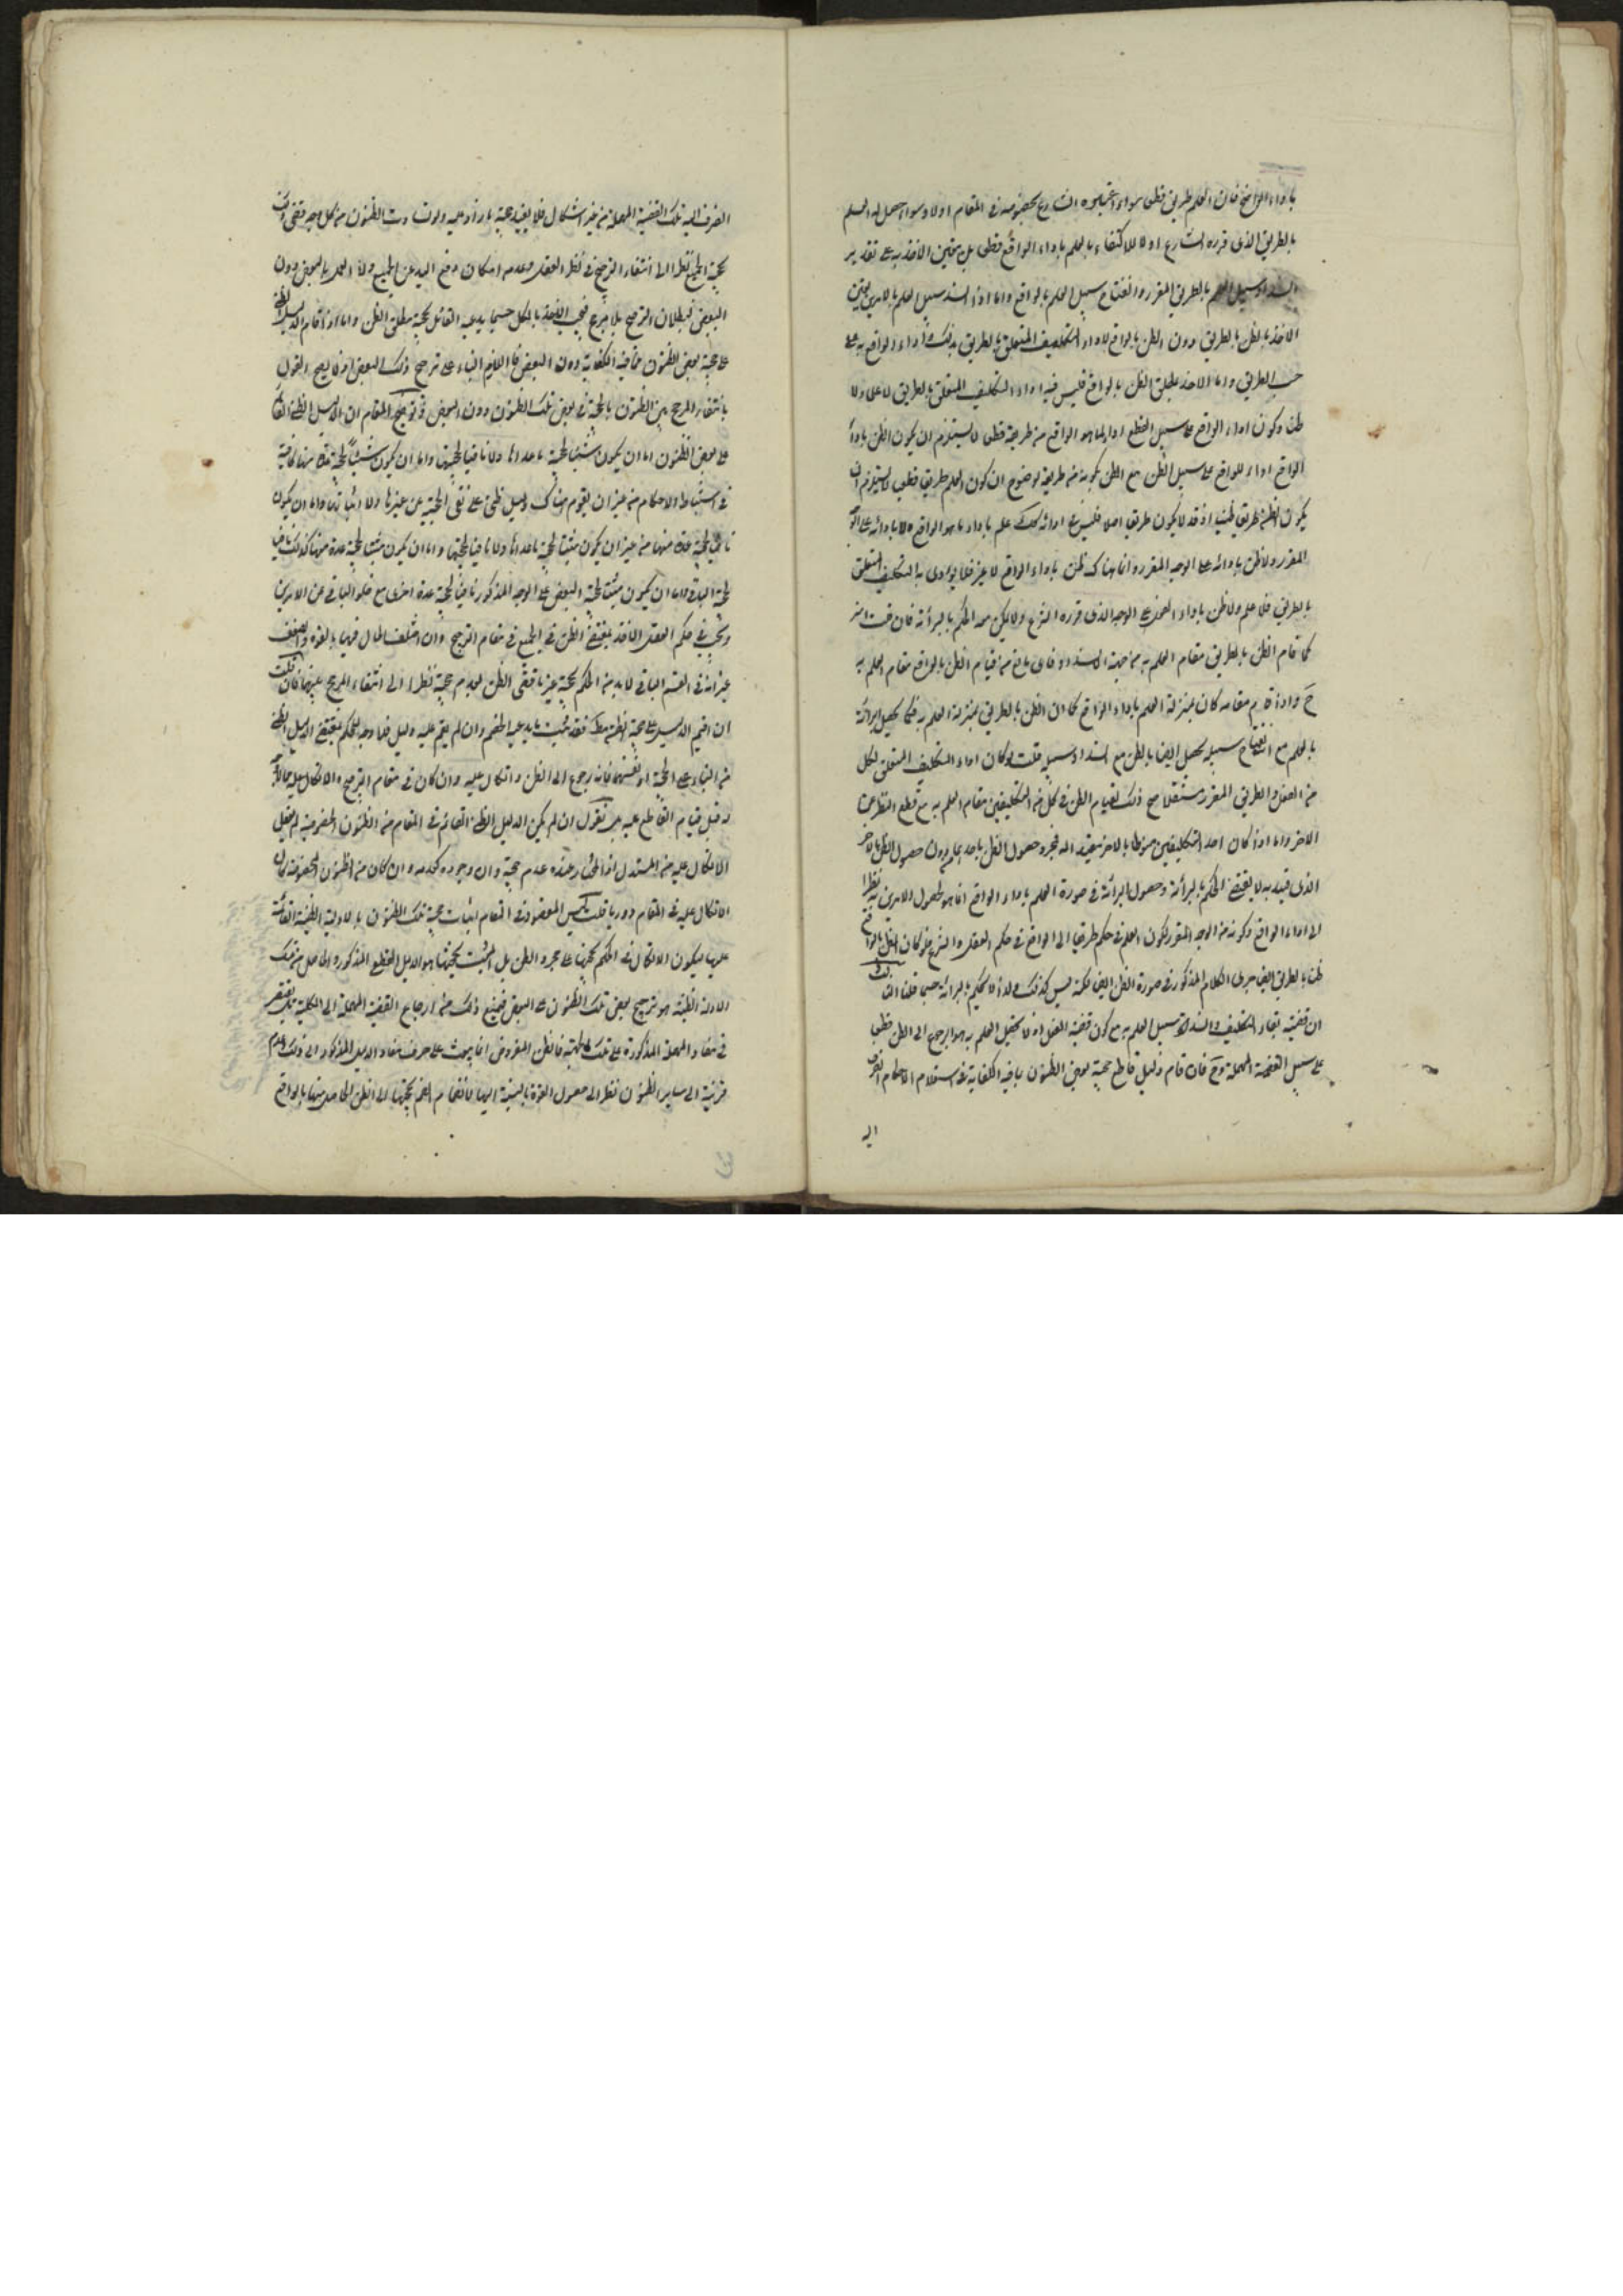 باداء الواقع فان العلم طريق قطعى سواء اعتبره الشارع بخصوصه فى المقام اولا وسواء حصل له العلم
بالطريق الذى قرره الشارع اولا للاكتفاء بالعلم باداء الواقع قطعى بل يتعين الاخذ به على تقدير
انسداد سبيل العلم بالطريق المقرر وانفتاح سبيل العلم بالواقع واما اذا انسد سبيل العلم بالامرين تعين
الاخذ بالظن بالطريق دون الظن بالواقع لاداء التكليف المتعلق بالطريق بذلك واداء الواقع به على
حسب الطريق واما الاخذ بمطلق الظن بالواقع فليس فيه اداء التكليف المتعلق بالطريق لا علما ولا
ظنا وكون اداء الواقع على سبيل القطع اداء لما هو الواقع من طريقه قطعى لا يستلزم ان يكون الظن باداء
الواقع اداء للواقع على سبيل الظن مع الظن بكونه من طريقه لوضوح ان كون العلم طريقا قطعى لا يستلزم ان
يكون الظن طريقا ظنيا اذ قد لا يكون طريقا اصلا فليس فى ادائه كذلك علم باداء ما هو الواقع ولا بادائه على الوجه
المقرر ولا ظن بادائه على الوجه المقرر وانما هناك ظن باداء الواقع لا غير فلا يؤدى به التكليف المتعلق
بالطريق فلا علم ولا ظن باداء العمل على الوجه الذى قرره الشرع ولا يمكن معه الحكم بالبرائة فان قلت انه
كما قام الظن بالطريق مقام العلم به من جهة الانسداد فاى مانع من قيام الظن بالواقع مقام العلم به
ح واذا قام مقامه كان بمنزلة العلم باداء الواقع كما ان الظن بالطريق بمنزلة العلم به فكما يحصل البرائة
بالعلم مع انفتاح سبيله يحصل ايضا بالظن مع انسداد سبيله قلت لو كان اداء التكليف المتعلق بكل
من الفعل والطريق المقرر مستقلا صح ذلك لقيام الظن فى كل من التكليفين مقام العلم به مع قطع النظر عن
الاخر واما اذا كان احد التكليفين منوطا بالاخر مقيدا له فمجرد حصول الظن باحدهما دون حصول الظن بالاخر
الذى قيد به لا يقتضى الحكم بالبرائة وحصول البرائة فى صورة العلم باداء الواقع انما هو لحصول الامرين به نظرا
الى اداء الواقع وكونه من الوجه المقرر لكون العلم فى حكم طريقا الى الواقع فى حكم العقل والشرع فلو كان الظن بالواقع
ظنا بالطريق ايضا جرى الكلام المذكور فى صورة الظن ايضا لكنه ليس كذلك ولذا لا نحكم بالبرائة حسبما قلنا الثالث
ان قضية بقاء التكليف وانسداد سبيل العلم به مع كون قضية العقل اولا تحصيل العلم به هو الرجوع الى الظن قطعا
على سبيل القضية المهملة وح فان قام دليل قاطع على حجية بعض الظنون مما فيه الكفاية فى استعلام الاحكام انصرف
اليه
انصرف اليه تلك القضية المهملة من غير اشكال فلا يفيد حجية ما زاد عليه ولو تساوت الظنون من كل وجه قضى ذلك
بحجية الجميع نظرا الى انتفاء الترجيح فى نظر العقل وعدم امكان رفع اليد عن الجميع ولا العمل بالبعض دون
البعض لبطلان الترجيح بلا مرجح فيجب الاخذ بالكل حسبما يدعيه القائل بحجية مطلق الظن واما اذا قام الدليل الظنى
على حجية بعض الظنون مما فيه الكفاية دون البعض فاللازم البناء على ترجيح ذلك البعض اذ لا يصح القول
بانتفاء المرجح بين الظنون بالحجية فى بعض تلك الظنون دون البعض وتوضيح المقام ان الدليل الظنى القائم
على بعض الظنون اما ان يكون مثبتا لحجية ما عداها ولا نافيا لحجيتها واما ان يكون مثبتا لحجية عدة منها كافية
فى استنباط الاحكام من غير ان يقوم هناك دليل ظنى على نفى الحجية عن غيرها ولا اثباتها واما ان يكون
نافيا لحجية عدة منها من غير ان يكون مثبتا لحجية ما عداها ولا نافيا لحجيتها واما ان يكون مثبتا لحجية عدة منها كذلك نافيا
لحجية الباقى واما ان يكون مثبتا لحجية البعض على الوجه المذكور نافيا لحجية عدة اخرى مع خلو الباقى عن الامرين
ويجرى فى حكم العقل الاخذ بمقتضى الظن فى الجميع فى مقام الترجيح وان اختلف الحال فيها بالقوة والضعف
غير انه فى القسم الباقى لا بد من الحكم بحجية غير ما قضى الظن بعدم حجيته نظرا الى انتفاء المرجح بينها فان قلت
ان اقيم الدليل على حجية الظن مطلقا فقد ثبت ما يدعيه الخصم وان لم يقم عليه دليل فلا وجه للحكم بمقتضى الدليل الظنى
من البناء على الحجية او نفيها فانه رجوع الى الظن واتكال عليه وان كان فى مقام الترجيح والاتكال عليه مما لا وجه
له قبل قيام القاطع عليه بل نقول ان لم يكن الدليل الظنى القائم فى المقام من الظنون المخصوصة لم يعقل
الاتكال عليه من المستدل اذ المختار عنده عدم حجيته وان وجوده كعدمه وان كان من الظنون المخصوصة كان
الاتكال عليه فى المقام دوريا قلت ليس المقصود فى المقام اثبات حجية تلك الظنون بالادلة الظنية القائمة
عليها ليكون الاتكال فى الحكم بحجيتها على مجرد الظن بل المثبت لحجيتها هو الدليل القطعى المذكور والحاصل من تلك
الادلة الظنية هو ترجيح بعض تلك الظنون على البعض فيمنع ذلك من ارجاع القضية المهملة الى الكلية بل يقتصر
فى مفاد المهملة المذكورة على تلك الجهة فالظن المفروض انما يبعث على صرف مفاد الدليل المذكور الى ذلك وعدم
صرفه الى ساير الظنون نظرا الى حصول القوة بالنسبة اليها لانضمام الظن بحجيتها الى الظن الحاصل منها بالواقع